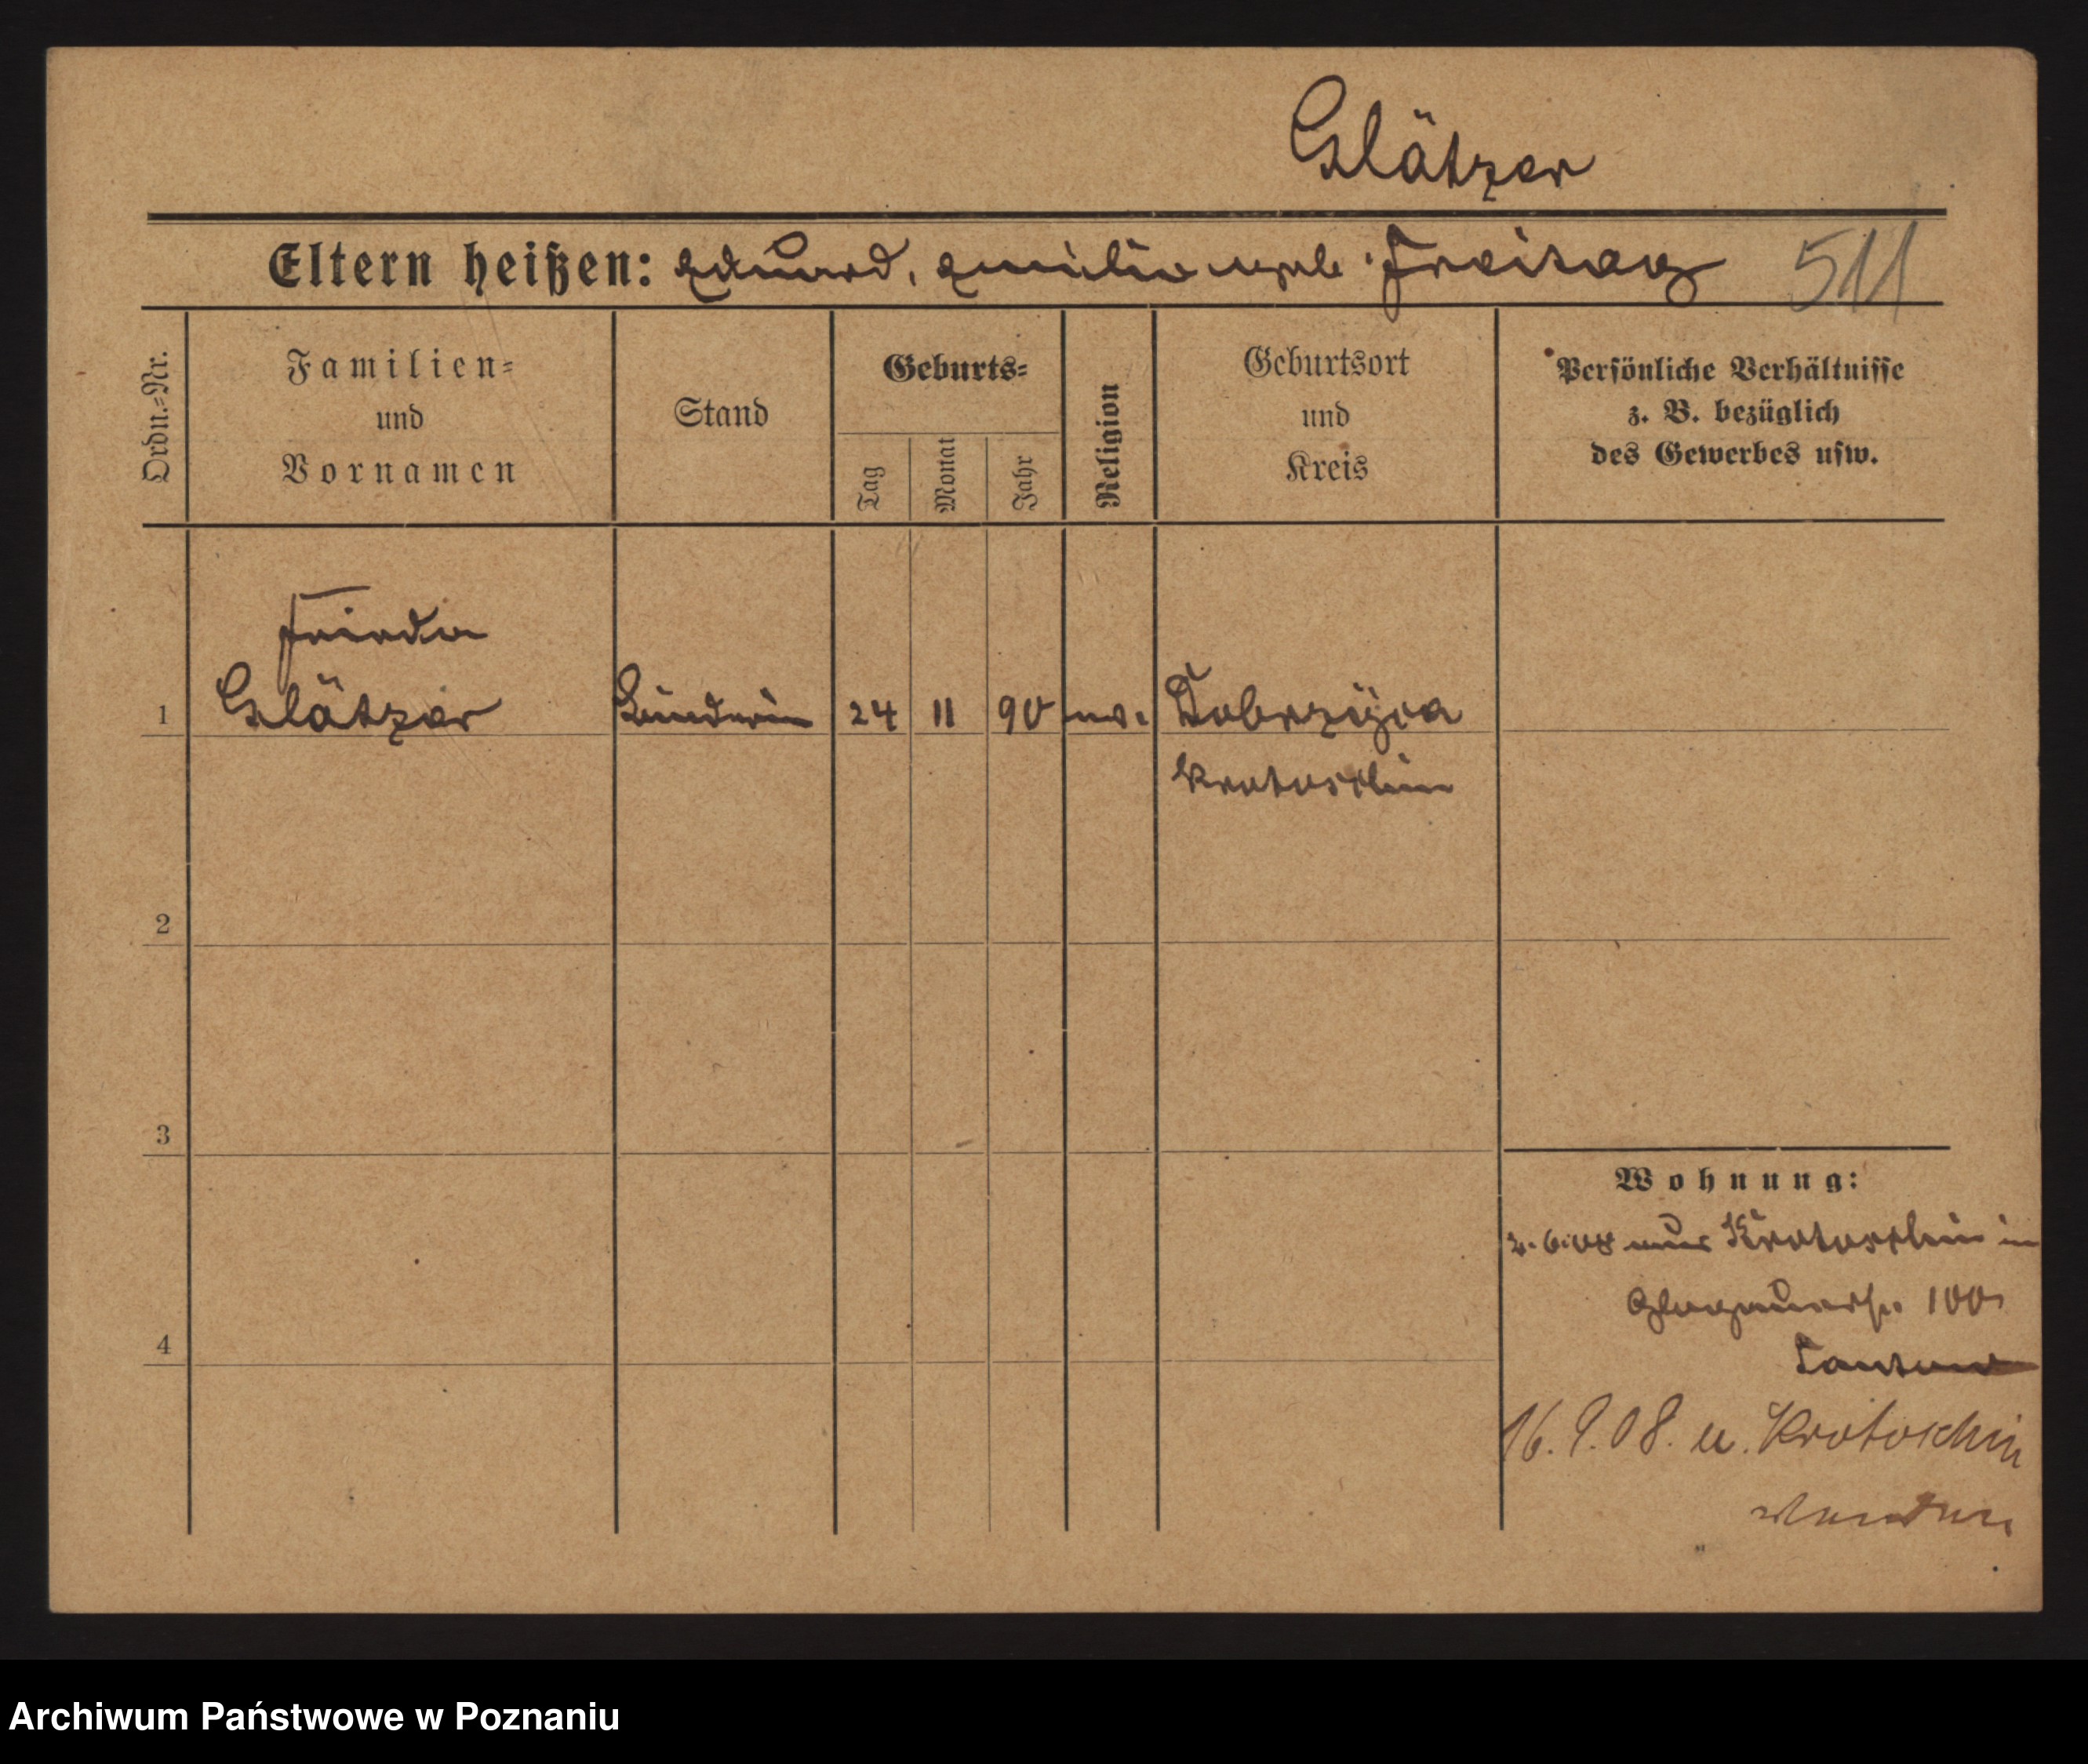 Glätzer
Eltern heißen: Eduard, Emilie geb. Freitag 511
Ordn.=Nr.
Familien=
und
Vornamen
Stand
Geburts=
Tag
Monat
Jahr
Religion
Geburtsort
und
Kreis
Persönliche Verhältnisse
z. B. bezüglich
des Gewerbes usw.
Frieda
1 Glätzer 24 11 90 ev. Dobrzyca
Krotoschin
2
3
Wohnung:
2.6.08 aus Krotoschin in
Glogauerstr. 100
4
16.9.08. n. Krotoschin
Archiwum Państwowe w Poznaniu